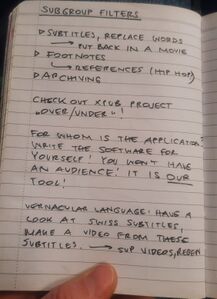 SUBGROUP FILTERS
▷ SUBTITLES, REPLACE WORDS
→ PUT BACK IN A MOVIE
▷ FOOTNOTES
→ REFERENCES (HIP HOP)
▷ ARCHIVING
CHECK OUT XPUB PROJECT
"OVER/UNDER"!
FOR WHOM IS THE APPLICATION?
WRITE THE SOFTWARE FOR
YOURSELF! YOU WON'T HAVE
AN AUDIENCE! IT IS OUR
TOOL!
VERNACULAR LANGUAGE: HAVE A
LOOK AT SWISS SUBTITLES,
MAKE A VIDEO FROM THESE
SUBTITLES. → SUP VIDEOS,